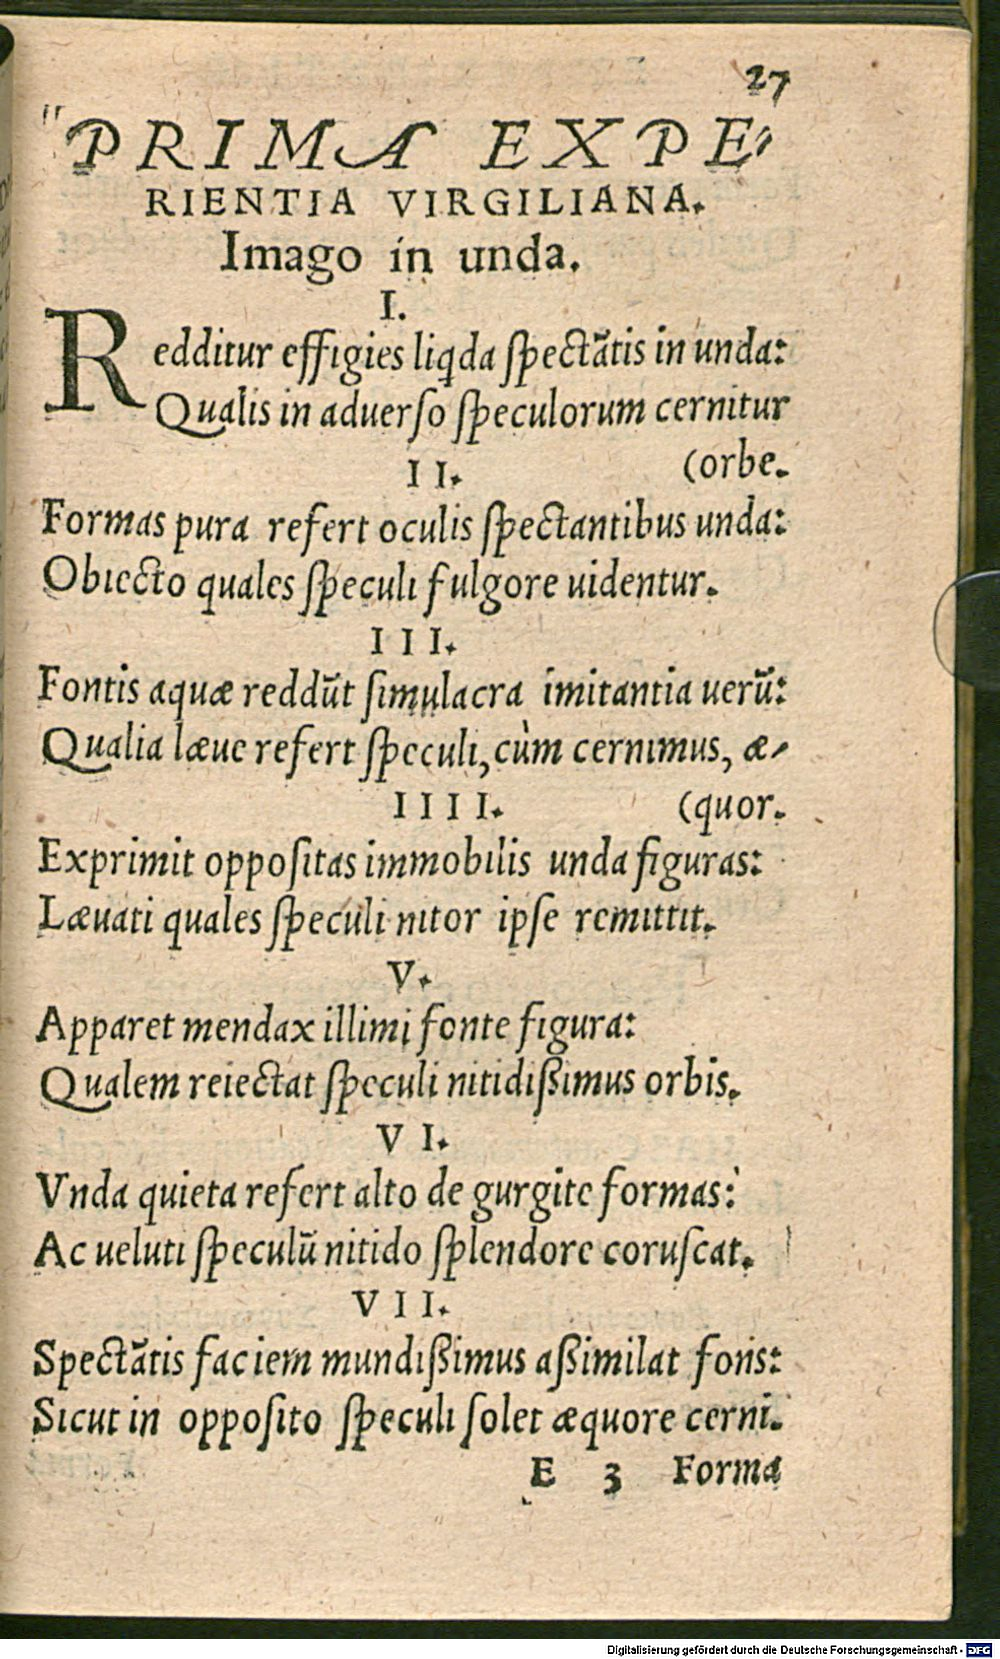 27
PRIMA EXPE-
RIENTIA VIRGILIANA.
Imago in unda.
I.
Redditur effigies liqda spectātis in unda:
Qualis in aduerso speculorum cernitur
(orbe.
II.
Formas pura refert oculis spectantibus unda:
Obiecto quales speculi fulgore uidentur.
III.
Fontis aquæ reddūt simulacra imitantia uerū:
Qualia læue refert speculi, cùm cernimus, æ-
(quor.
IIII.
Exprimit oppositas immobilis unda figuras:
Læuati quales speculi nitor ipse remittit.
V.
Apparet mendax illimi fonte figura:
Qualem reiectat speculi nitidißimus orbis.
VI.
Vnda quieta refert alto de gurgite formas:
Ac ueluti speculū nitido splendore coruscat.
VII.
Spectātis faciem mundißimus aßimilat fons:
Sicut in opposito speculi solet æquore cerni.
E 3 Forma
Digitalisierung gefördert durch die Deutsche Forschungsgemeinschaft - DFG